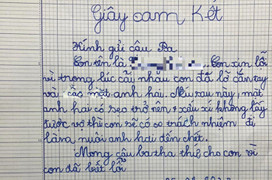 Giấy cam Kết
Kính gửi câu Ba
Con tên là Con xin lỗi
vì trong lúc cãi nhau con đã lỡ cắn tay
và cào mặt anh hai. Nếu sau này, mặt
anh hai có sẹo trở nên xấu xí không lấy
được vợ thì con sẽ có trách nhiệm đi
làm, nuôi anh hai đến chết.
Mong cậu ba tha thứ cho con vì
con đã biết lỗi